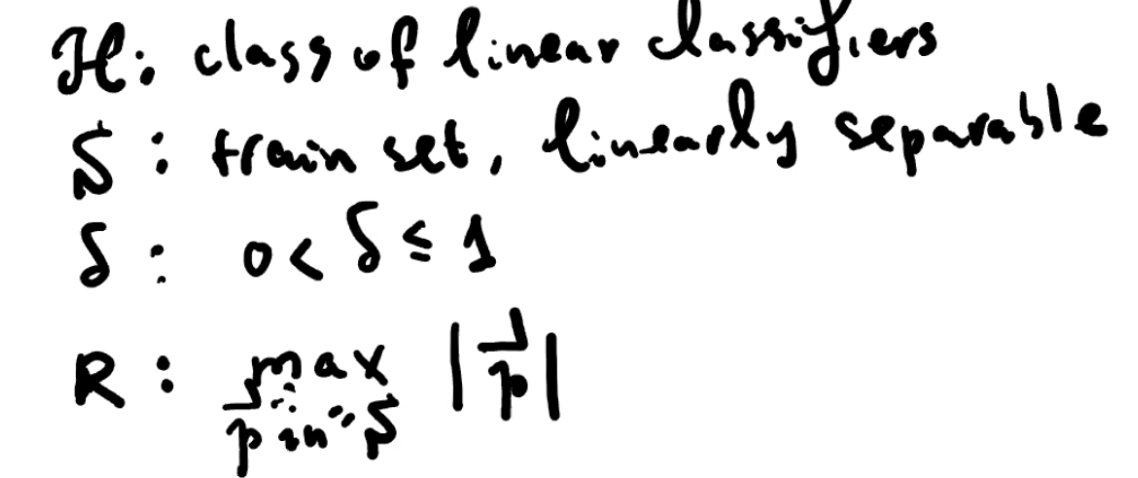 ℋ: class of linear classifiers
S : train set, linearly separable
δ : 0 < δ ≤ 1
R : max |p⃗|
p⃗ "in" S